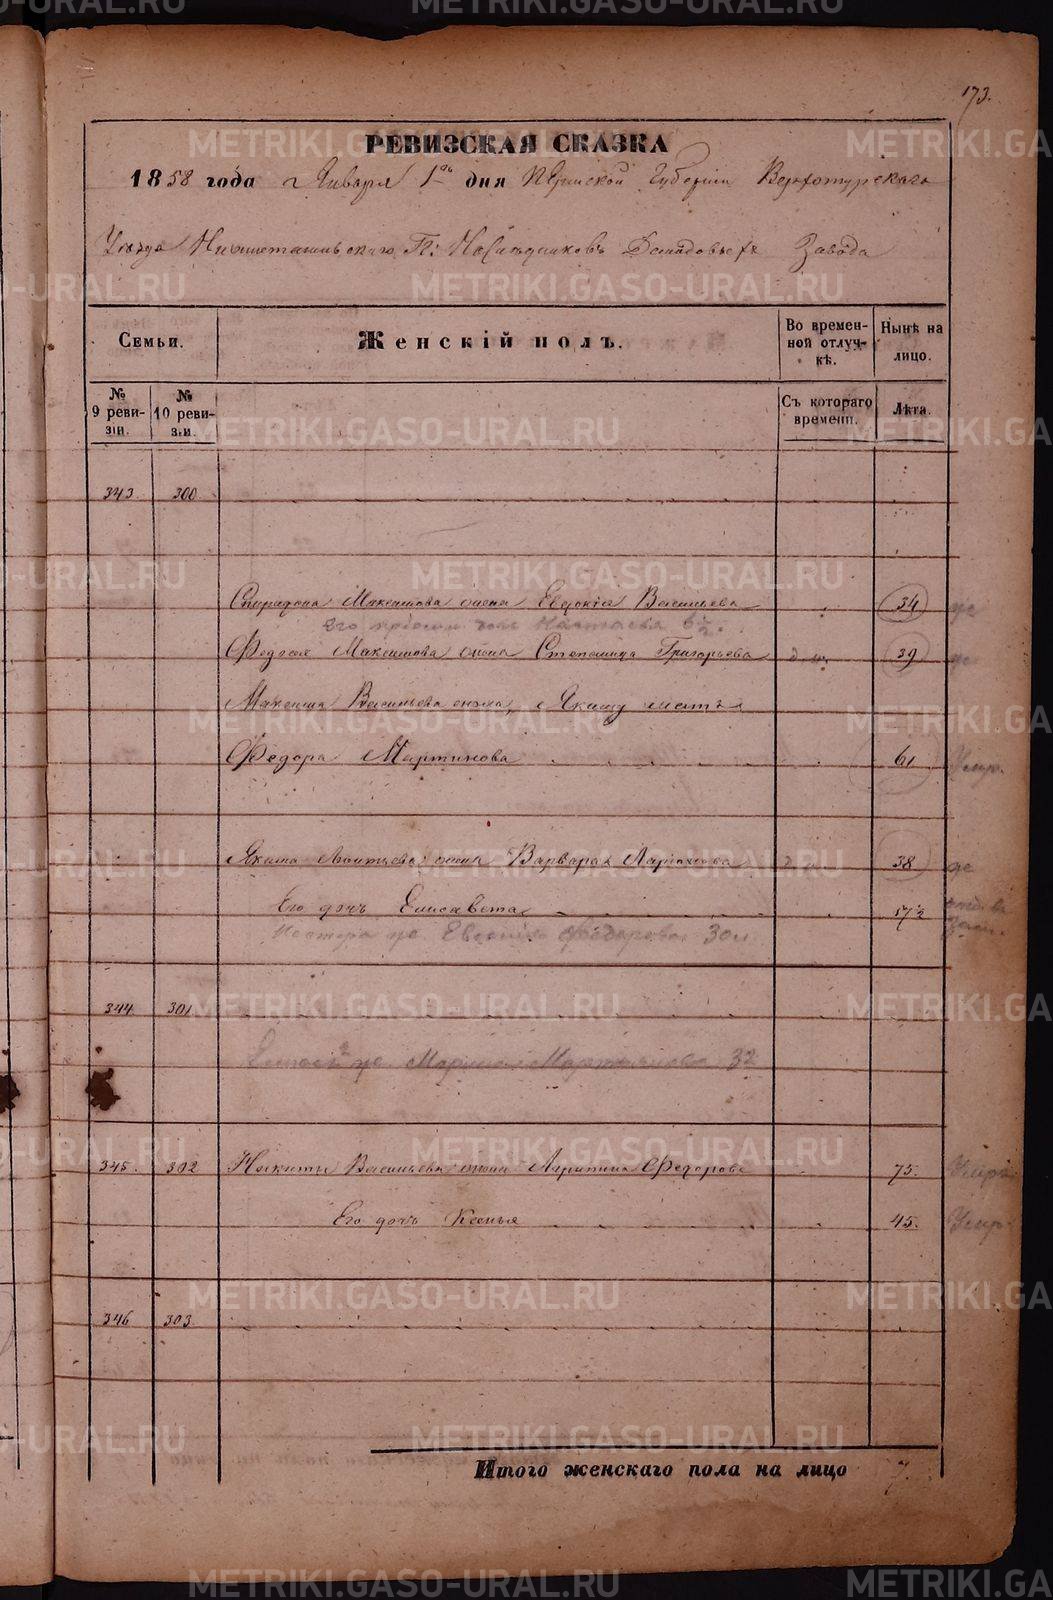 173.
РЕВИЗСКАЯ СКАЗКА
1858 года Января 1го дня Пермской Губерніи Верхотурскаго
Уезда Нижнетагильскаго Гг. Наследниковъ Демидовыхъ Завода
Семьи.
Женскій полъ.
Во временной отлучкѣ.
Нынѣ на лицо.
№ 9 ревизіи.
№ 10 ревизіи.
Съ котораго времени.
Лѣта.
343. 300
Спиридона Максимова жена Евдокія Васильева 34
Федосея Максимова жена Степанида Григорьева 39
Максима Васильева сноха, Якиму мать
Федора Мартинова 61 Умр.
Якима Леонтьева жена Варвара 38
Его дочь Елисавета 17½
Нестора же Евгенія Федорова 30л
344 301
же Марина Мартынова 32
345. 302 Никиты Васильева жена Федорова 75. Умр.
Его дочь Ксенья 45. Умр.
346 303
Итого женскаго пола на лицо 7.
METRIKI.GASO-URAL.RU